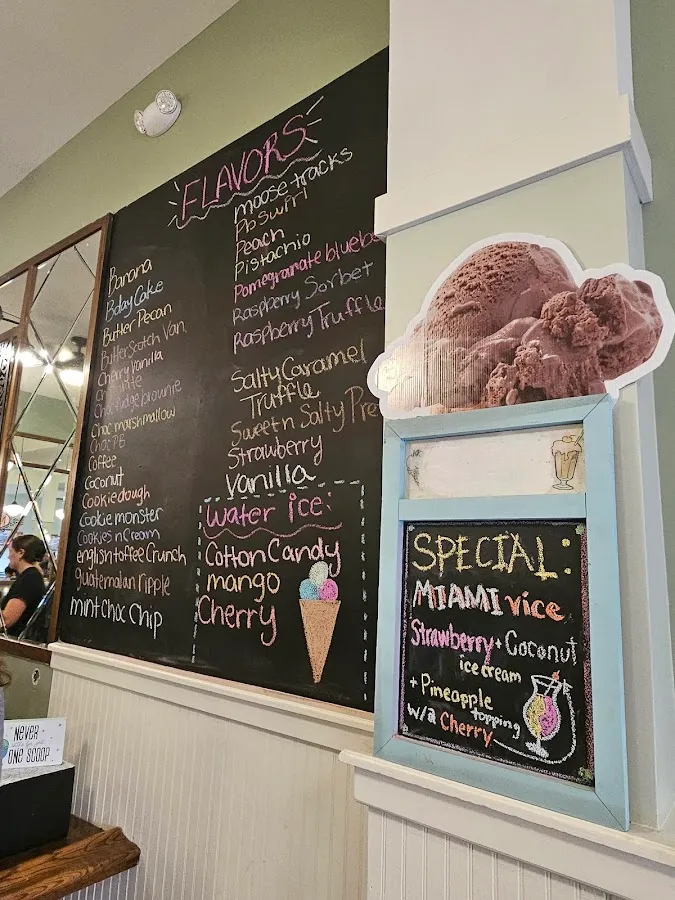 FLAVORS
Banana
Bday Cake
Butter Pecan
Butterscotch Van
Cherry Vanilla
Choc fudge brownie
Choc marshmallow
Choc PB
Coffee
Coconut
Cookie dough
Cookie monster
Cookies n Cream
english toffee Crunch
guatemalan ripple
mint choc chip
moose tracks
Pb swirl
Peach
Pistachio
Pomegranate bluebe
Raspberry Sorbet
Raspberry Truffle
Salty Caramel
Truffle
Sweet n Salty Pre
Strawberry
Vanilla
Water ice:
Cotton Candy
mango
Cherry
SPECIAL:
MIAMI vice
Strawberry + Coconut
ice cream
+ Pineapple
topping
w/a Cherry
NEVER
ONE SCOOP